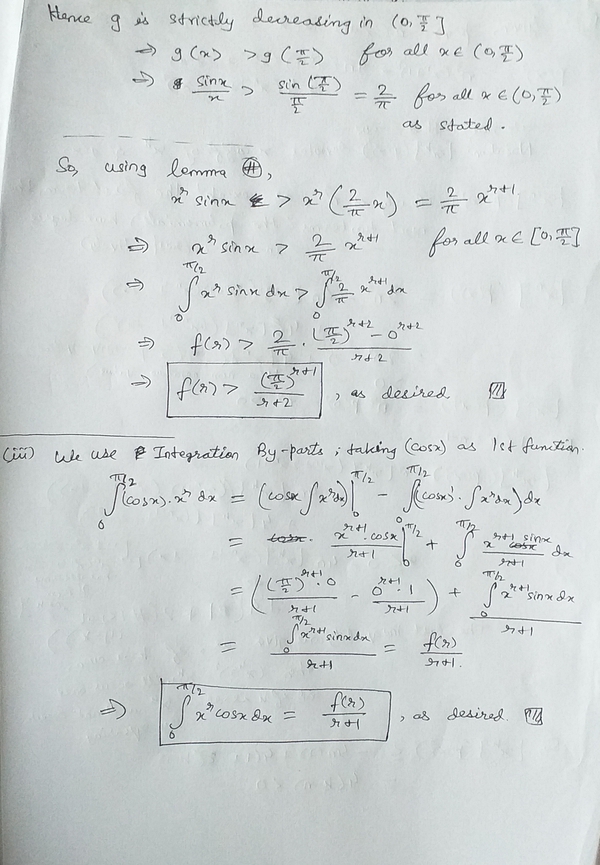 Hence g is strictly decreasing in (0, π/2]
⇒ g(x) > g(π/2) for all x ∈ (0, π/2)
⇒ sinx/x > sin(π/2)/(π/2) = 2/π for all x ∈ (0, π/2)
as stated.
So, using lemma (#),
x^r sinx > x^r (2/π x) = 2/π x^(r+1)
⇒ x^r sinx > 2/π x^(r+1) for all x ∈ [0, π/2]
⇒ ∫_0^(π/2) x^r sinx dx > ∫_0^(π/2) 2/π x^(r+1) dx
⇒ f(r) > 2/π · ((π/2)^(r+2) - 0^(r+2))/(r+2)
⇒ f(r) > (π/2)^(r+1)/(r+2) , as desired
(iii) We use Integration By-parts ; taking (cosx) as 1st function.
∫_0^(π/2) (cosx) · x^r dx = (cosx ∫x^r dx)|_0^(π/2) - ∫_0^(π/2) ((cosx)' · ∫x^r dx) dx
= x^(r+1) · cosx/(r+1) |_0^(π/2) + ∫_0^(π/2) x^(r+1) sinx/(r+1) dx
= ((π/2)^(r+1) · 0/(r+1) - 0^(r+1) · 1/(r+1)) + ∫_0^(π/2) x^(r+1) sinx dx/(r+1)
= ∫_0^(π/2) x^(r+1) sinx dx/(r+1) = f(r)/(r+1).
⇒ ∫_0^(π/2) x^r cosx dx = f(r)/(r+1) , as desired.